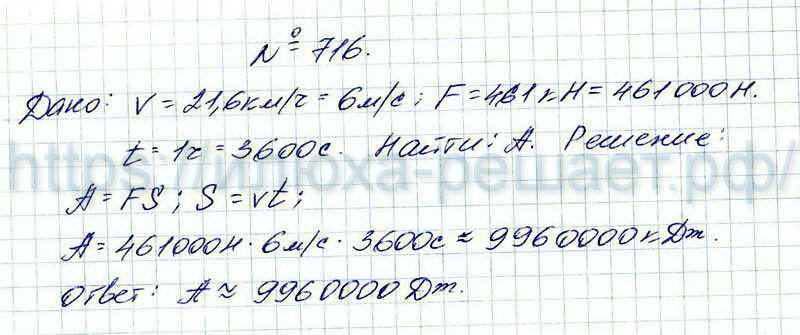 № 716.
Дано: v = 21,6 км/ч = 6 м/с; F = 461 кН = 461000 Н.
t = 1 ч = 3600 с. Найти: A. Решение:
https://илюха-решает.рф/
A = FS; S = vt;
A = 461000 Н · 6 м/с · 3600 с ≈ 9960000 кДж.
Ответ: A ≈ 9960000 Дж.